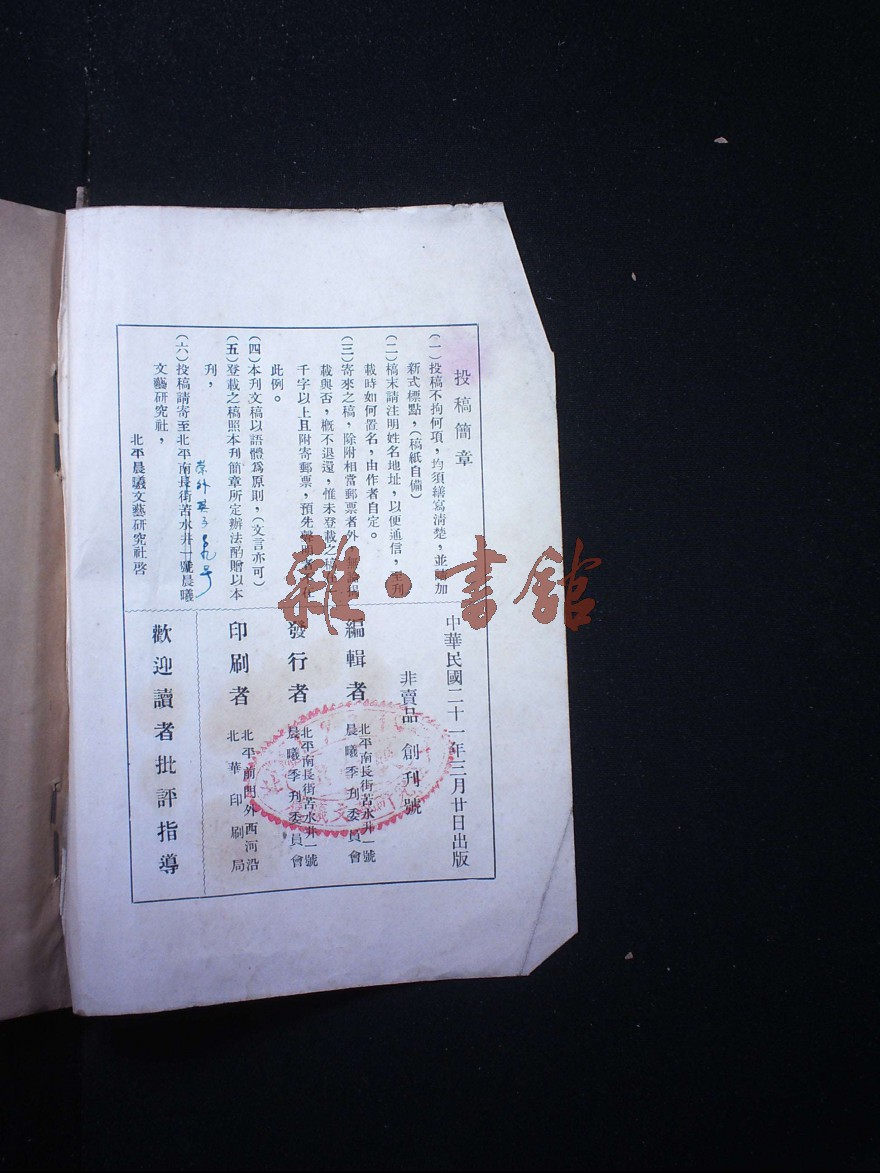 投稿簡章
(一)投稿不拘何項，均須繕寫清楚，並請加
新式標點，(稿紙自備)
(二)稿末請注明姓名地址，以便通信，至刊
載時如何署名，由作者自定。
(三)寄來之稿，除附相當郵票者外，無論揭
載與否，概不退還，惟未登載之稿
千字以上且附寄郵票，預先聲明者，不在
此例。
(四)本刊文稿以語體爲原則，(文言亦可)
(五)登載之稿照本刊簡章所定辦法酌贈以本
刊，
(六)投稿請寄至北平南長街苦水井一號晨曦
文藝研究社，
北平晨曦文藝研究社啓
中華民國二十一年三月廿日出版
非賣品 創刊號
編輯者
北平南長街苦水井一號
晨曦季刊委員會
發行者
北平南長街苦水井一號
晨曦季刊委員會
印刷者
北平前門外西河沿
北華印刷局
歡迎讀者批評指導
雜·書館